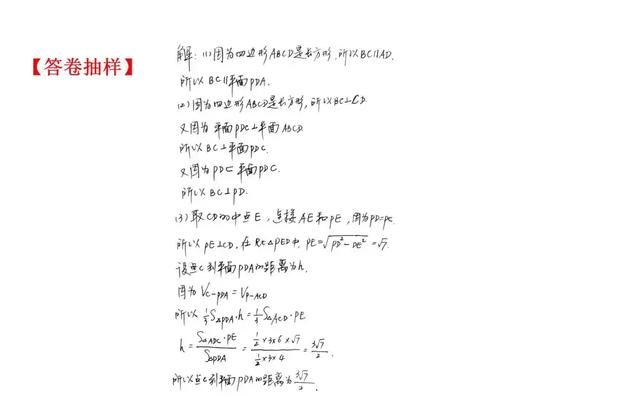 【答卷抽样】
解:(1)因为四边形ABCD是长方形,所以BC∥AD.
所以BC∥平面PDA.
(2)因为四边形ABCD是长方形,所以BC⊥CD
又因为平面PDC⊥平面ABCD.
所以BC⊥平面PDC.
又因为PD⊂平面PDC.
所以BC⊥PD.
(3)取CD的中点E,连接AE和PE,因为PD=PC.
所以PE⊥CD.在Rt△PED中.PE=√(PD²-DE²)=√7.
设点C到平面PDA的距离为h.
因为V_{C-PDA}=V_{P-ACD}
所以 1/3 S_{△PDA}·h=1/3 S_{△ACD}·PE
h=(S_{△ADC}·PE)/(S_{△PDA})=(1/2×3×6×√7)/(1/2×3×4)=3√7/2.
所以点C到平面PDA的距离为3√7/2.